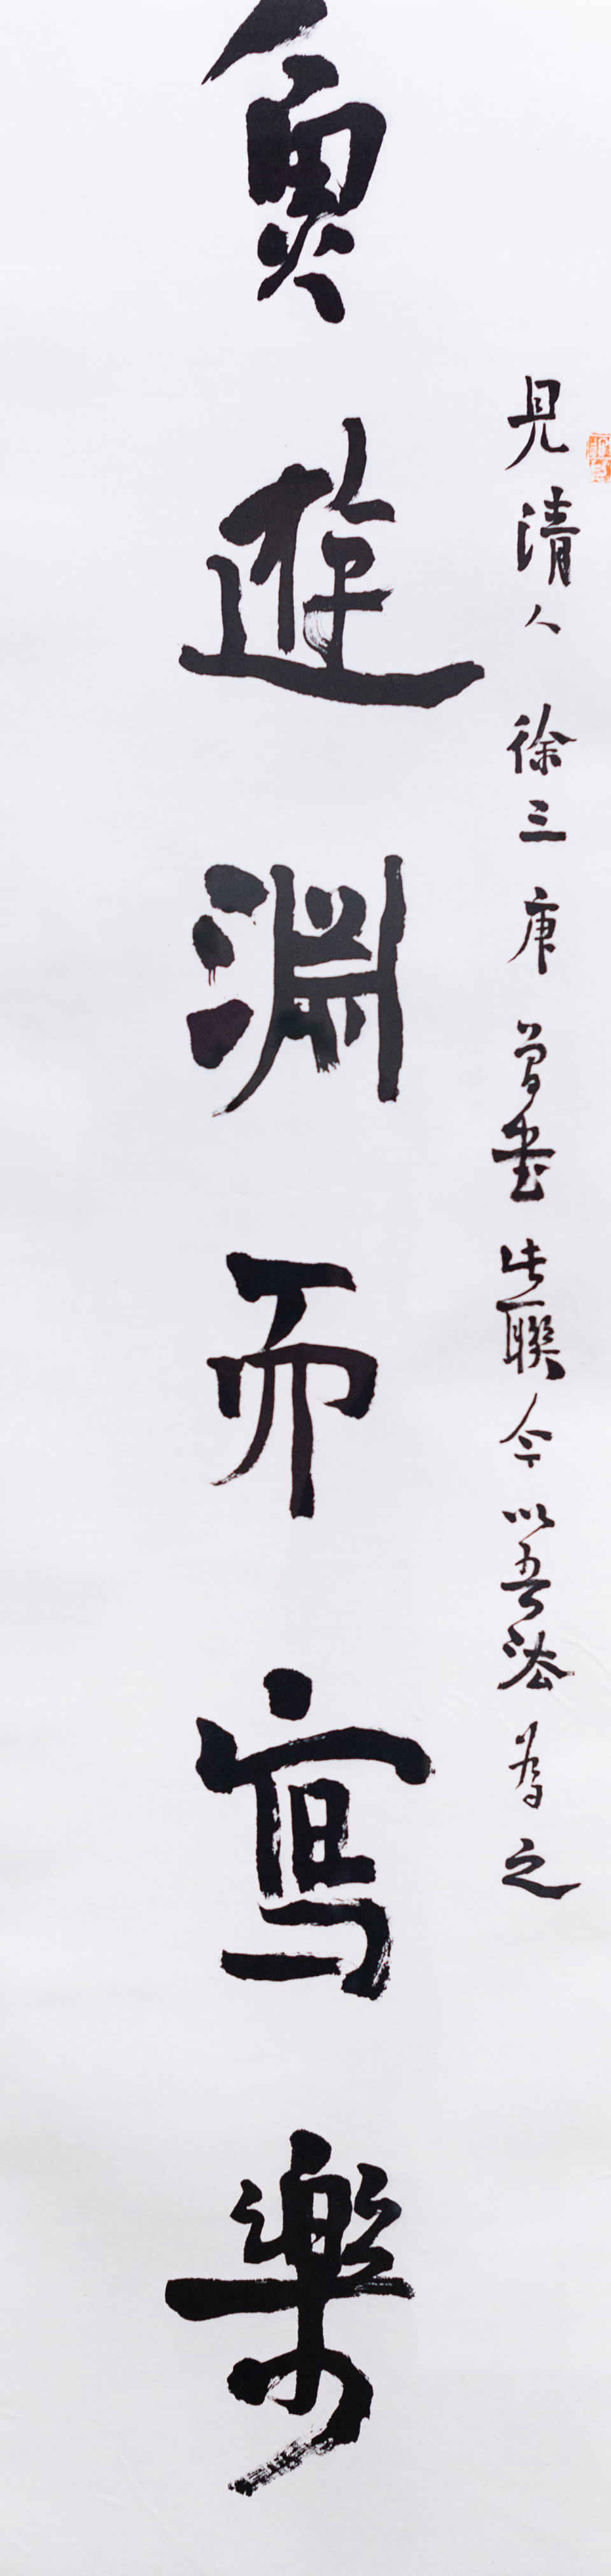 見清人徐三庚曾書此聯今以吾法為之
魚遊淵而寫樂